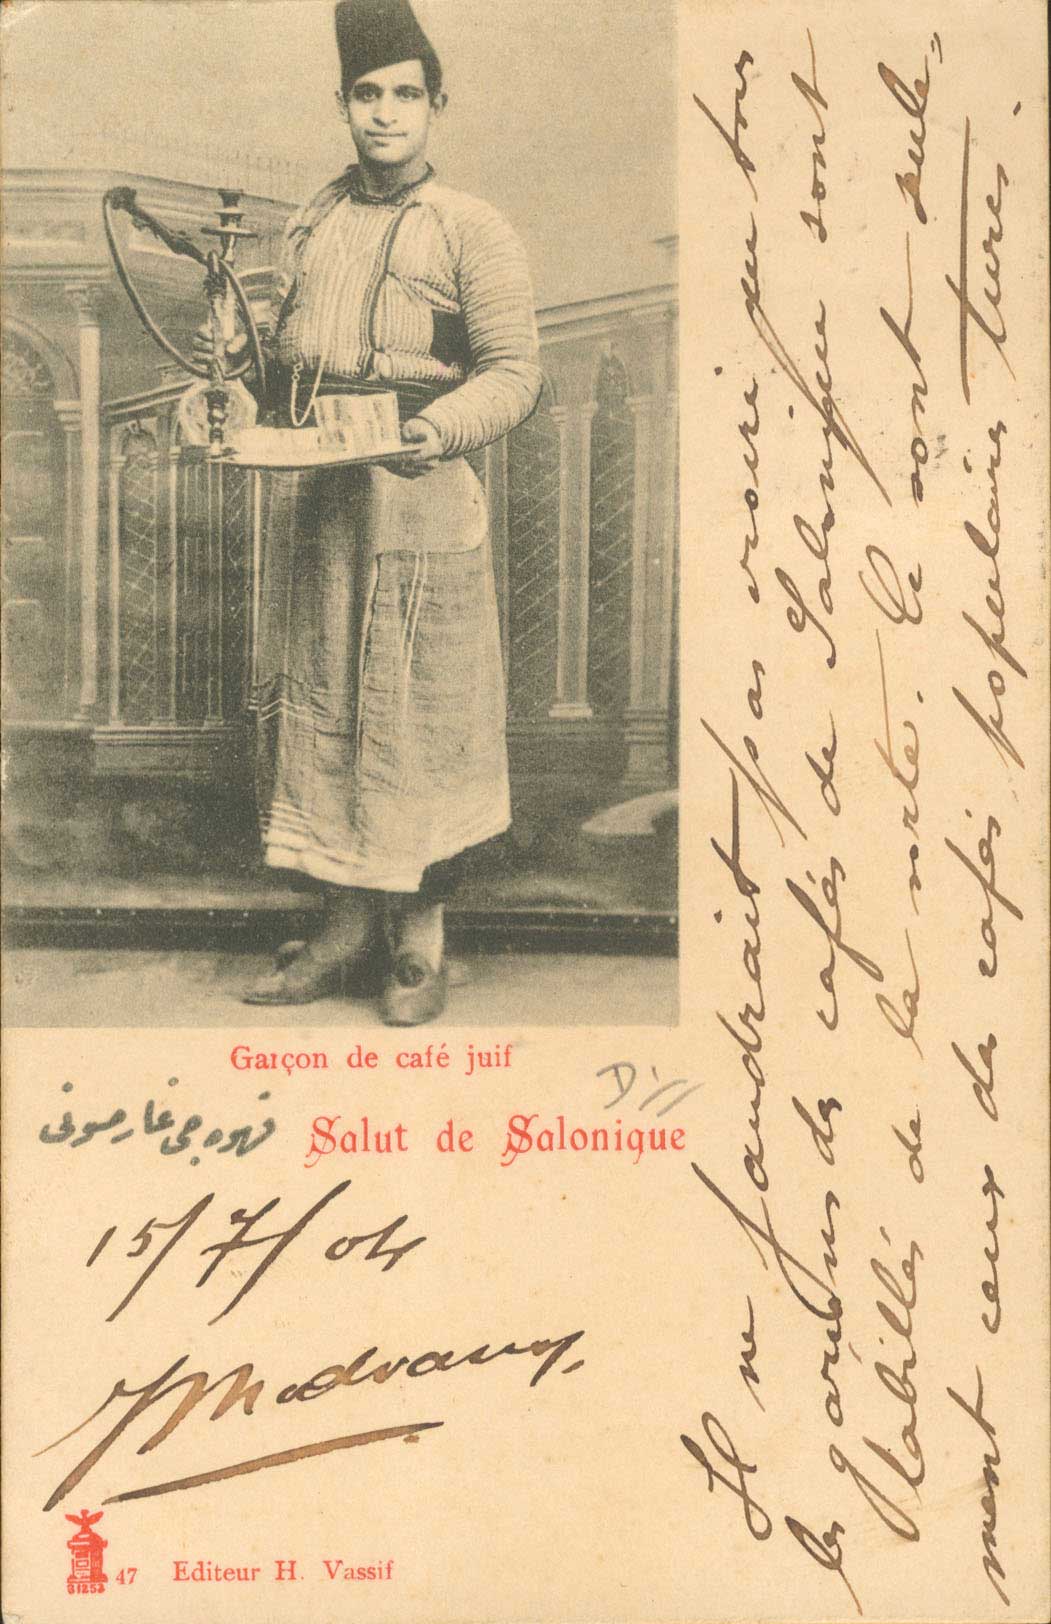 Garçon de café juif
قهوه جی غارصونی
Salut de Salonique
15/7/04
47 Editeur H. Vassif
Il ne faudrait pas croire que tous
les garçons des cafés de Salonique sont
habillés de la sorte. Ce sont seule=
ment ceux des cafés populaires turcs.